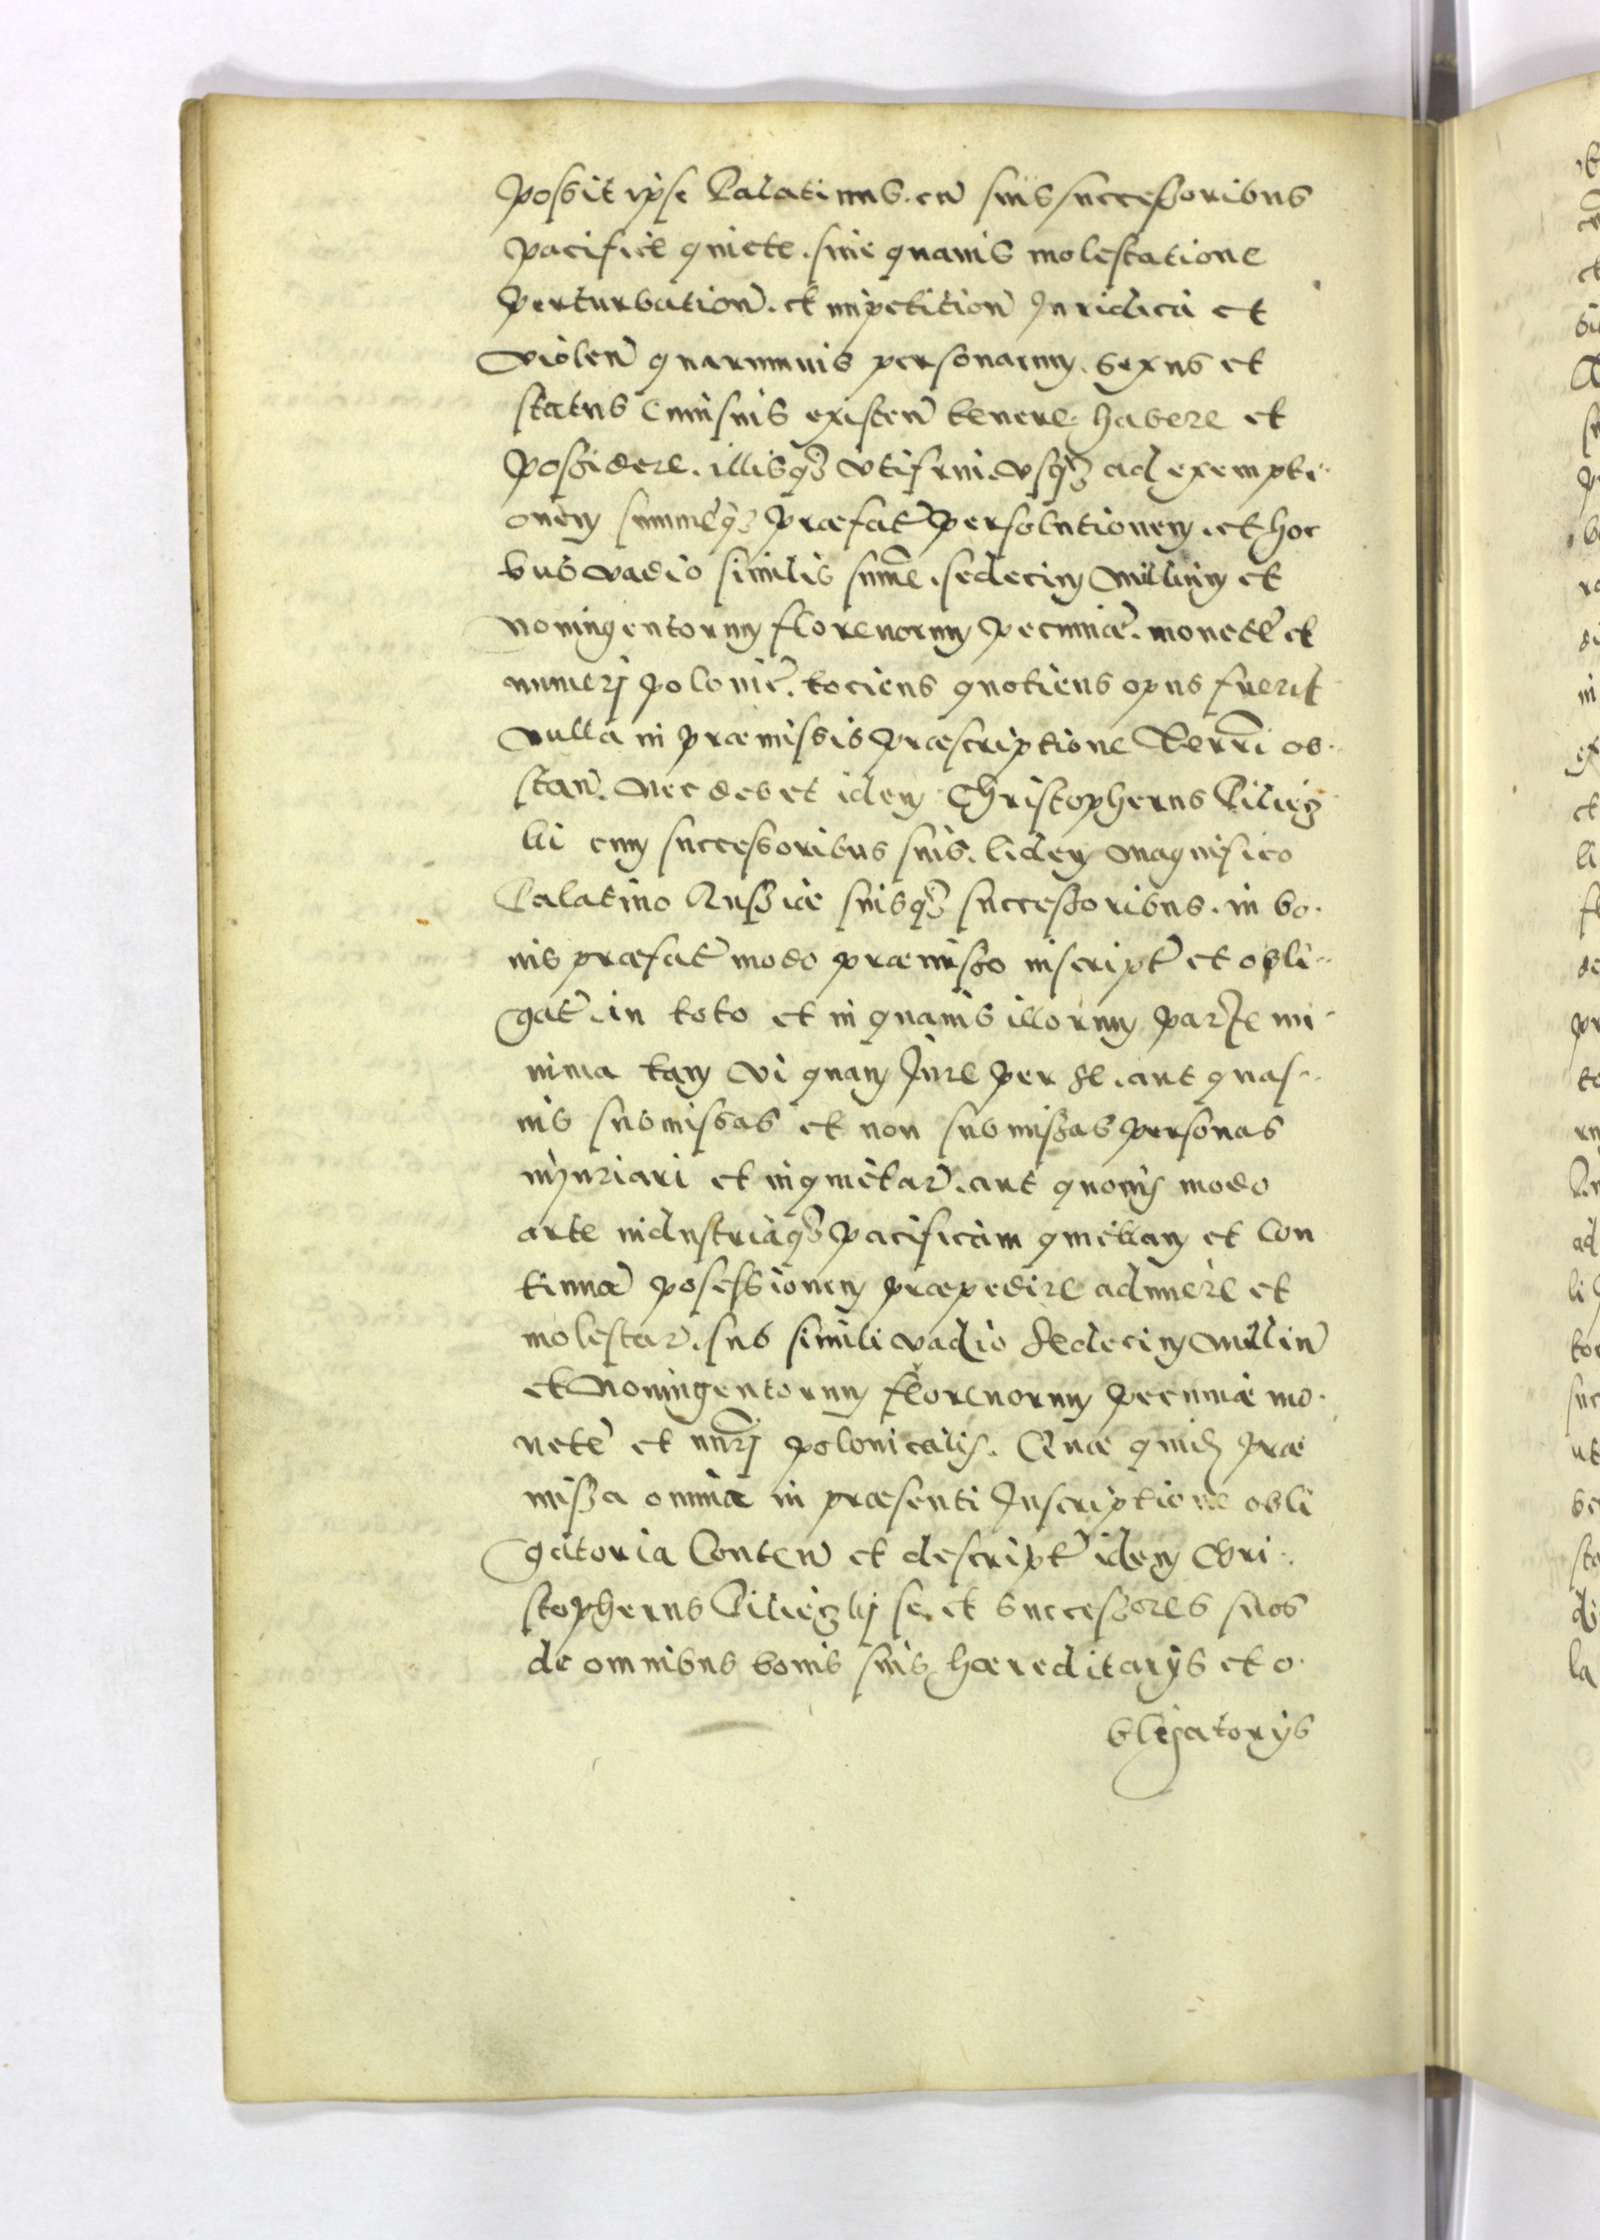 possit ipse Palatinus. cũ suis successoribus
pacifice quiete. sine quauis molestatione
perturbation̄. et impetition̄ Iuridica et
violen̄ quarumuis personarum. sexus et
status Cuiusuis existen̄ tenere. habere et
possidere. illisq₃ vtifrui. vsq₃ ad exempti-
onem summeq₃ præfat̄ persolutionem. et hoc
sub vadio similis sum̄e. sedecim Millium et
noningentorum florenorum pecuniæ. monetæ et
numerj polonic̄. tociens quotiens opus fuerit
nulla in præmissis præscriptione Terr̄i ob-
stan̄. Nec debet idem Christopherus Pilieczki
cum successoribus suis. Eidem Magnifico
Palatino Russiæ suisq₃ successoribus. in bo-
nis præfat̄ modo præmisso inscript̄ et obli-
gat̄. in toto et in quauis illorum parte mi-
nima tam vi quam Iure per se. aut quas-
uis submissas et non submissas personas
iniuriari et inquietar̄. aut quouis modo
arte industriaq₃ pacificam quietam et Con
tinuā posessionem præpedire adimere et
molestar̄. sub simili vadio Sedecim Milliū
et Noningentorum florenorum pecuniæ mo-
nete et nūrj polonicalis. Quæ quid̄ præ
missa omnia in præsenti Inscriptione obli
gatoria Conten̄ et descript̄ idem Chri-
stopherus Pilieczkj se. et successores suos
de omnibus bonis suis hæreditarijs et o-
bligatorijs